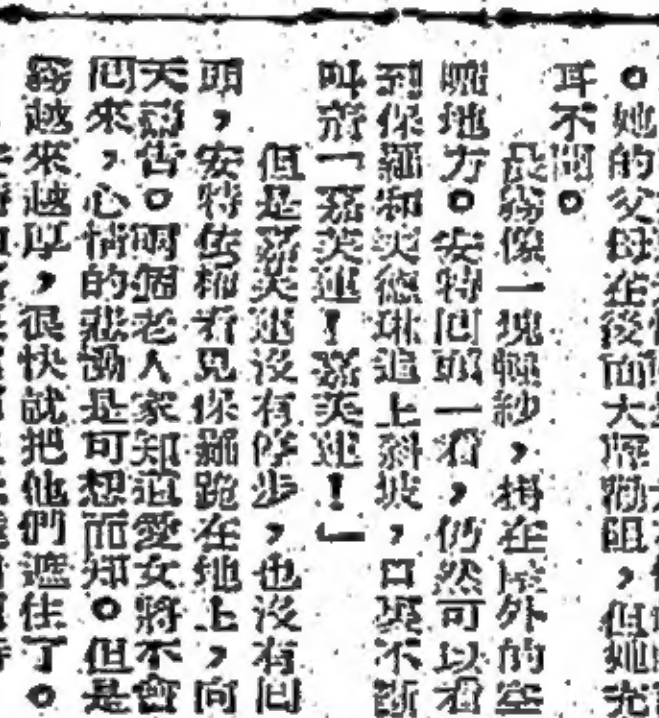 。她的父母在後面大聲勸阻，但她充
耳不聞。
晨霧像一塊輕紗，掛在屋外的空
曠地方。安特回頭一看，仍然可以看
到保羅和艾德琳追上斜坡，口裏不斷
叫着「嘉芙蓮！嘉芙蓮！」
但是嘉芙蓮沒有停步，也沒有回
頭，安特佐柳看見保羅跪在地上，向
天禱告。兩個老人家知道愛女將不會
回來，心情的悲慟是可想而知。但是
霧越來越厚，很快就把他們遮住了。